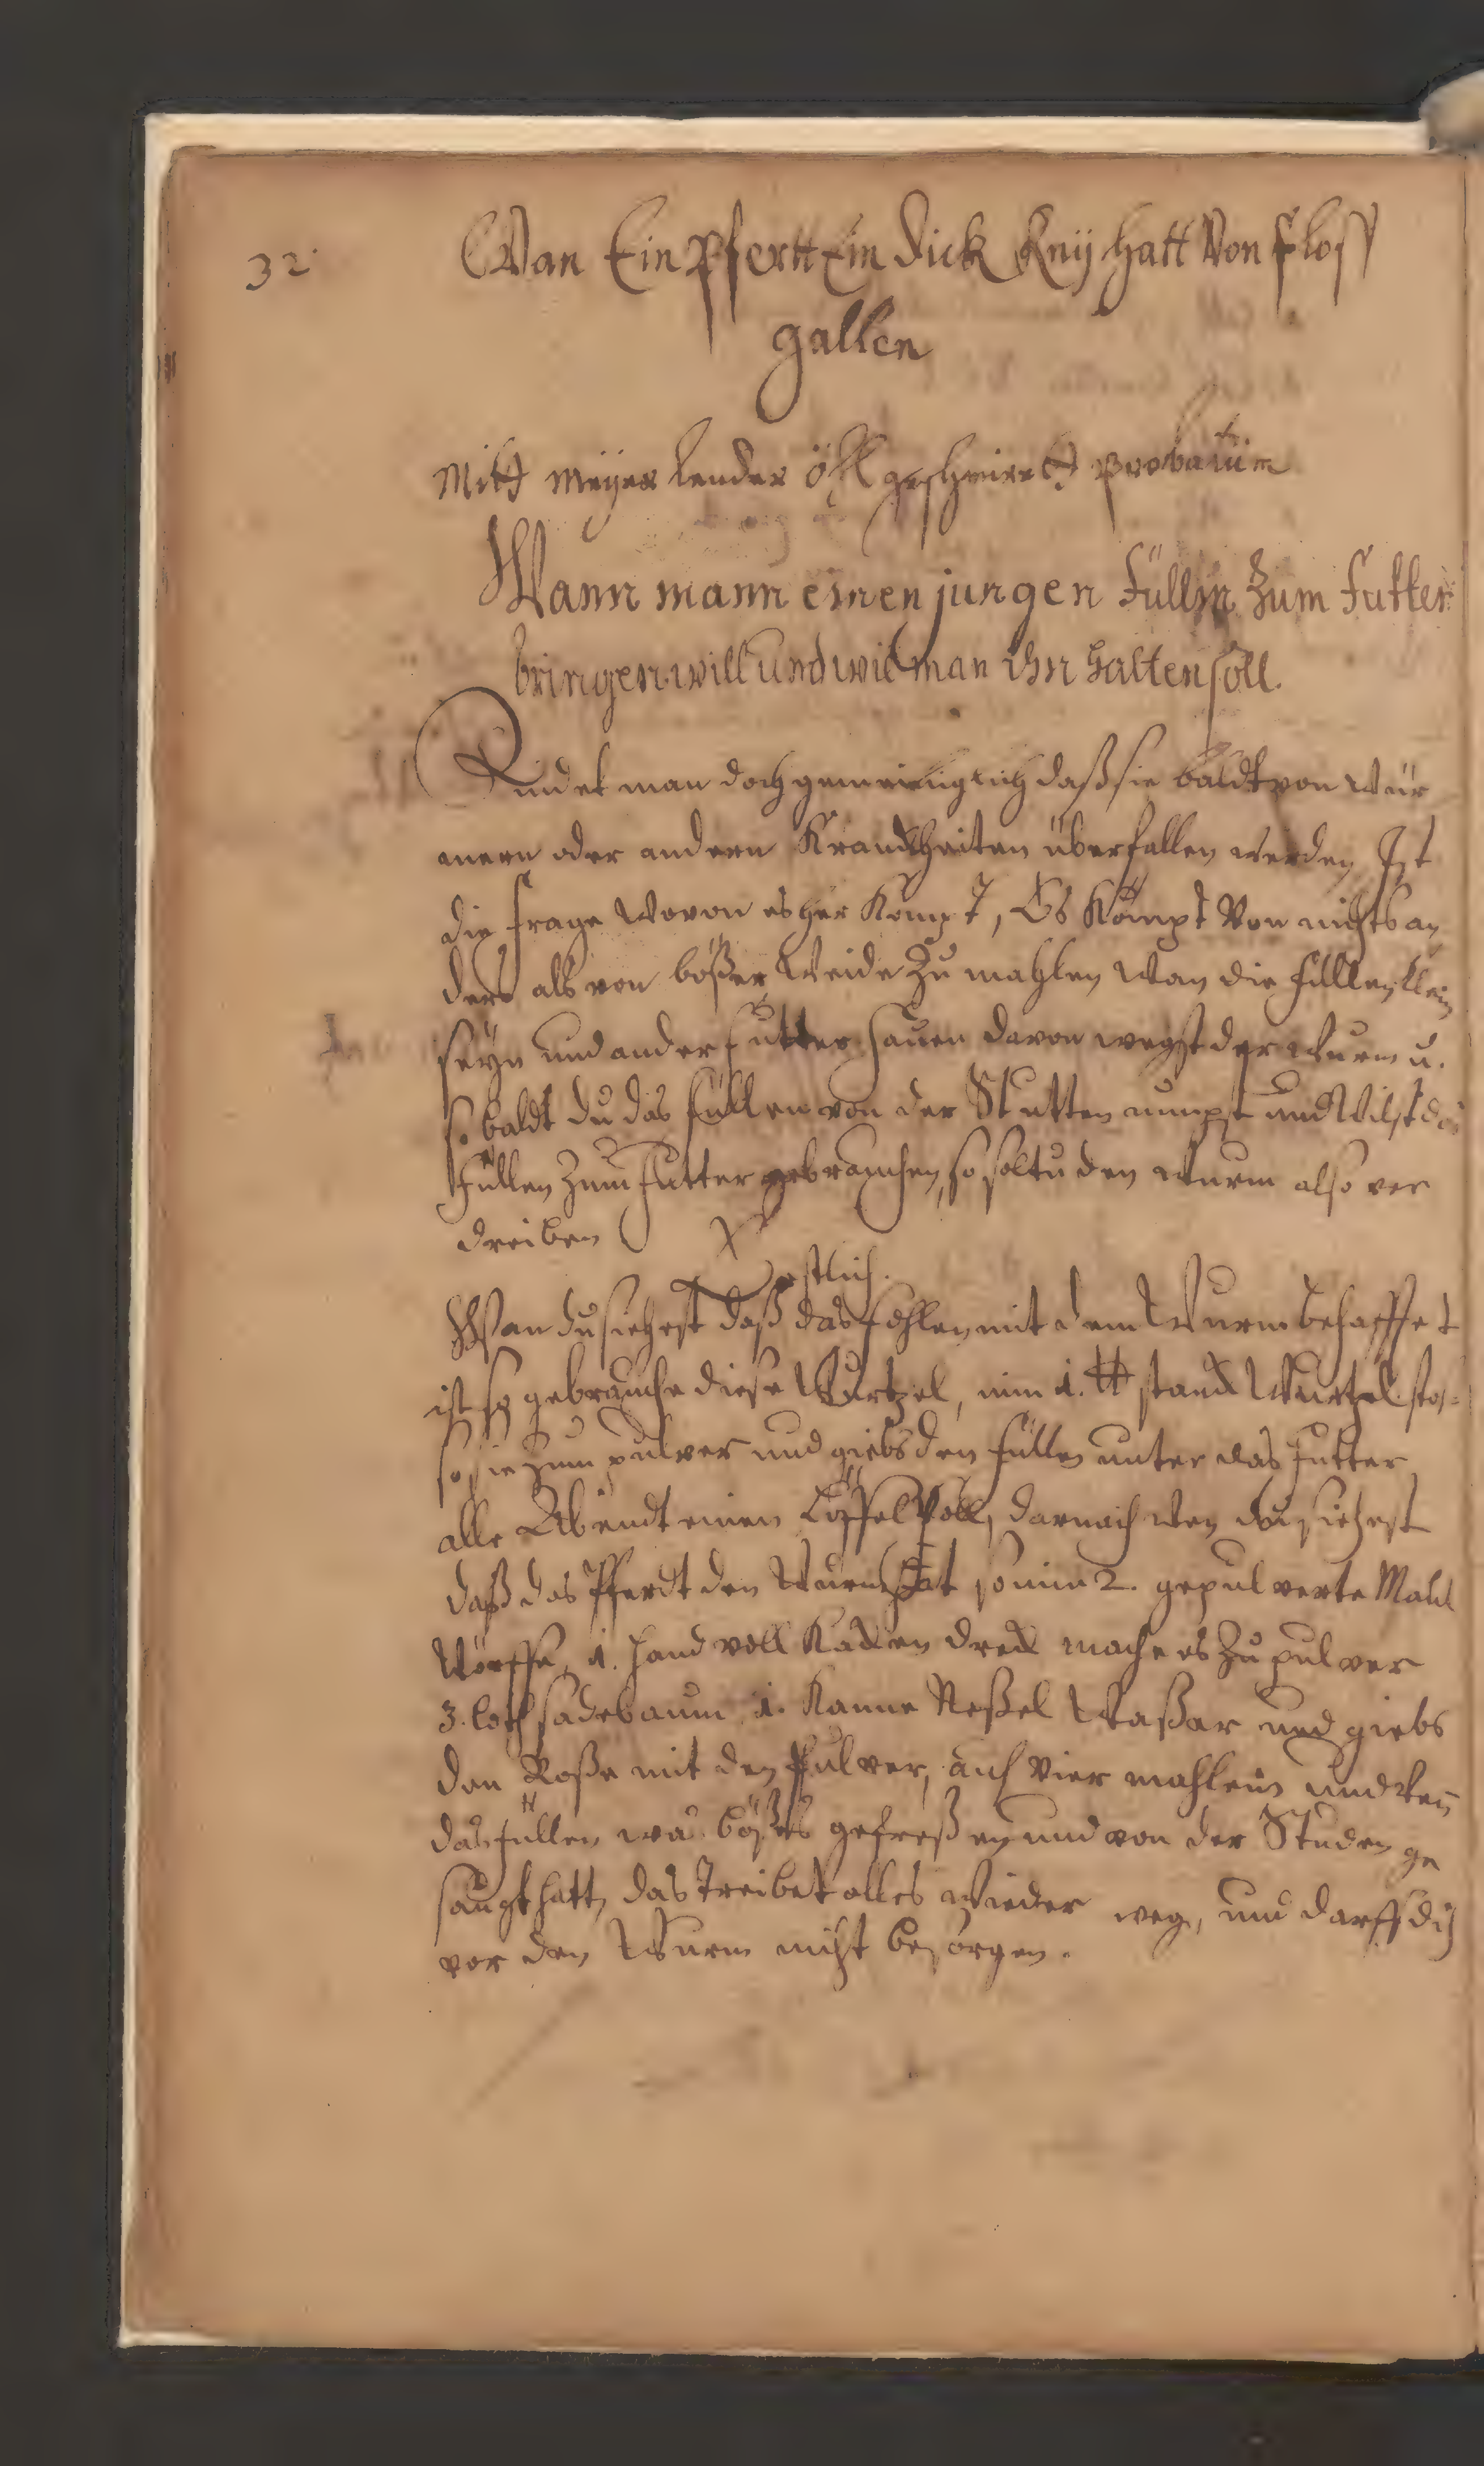 32.
Wan Ein Pfertt Ein dick Knÿ hatt Von floß
gallen
Mitt Meÿer lender öhl geschmirett probatum
Wann mann einen jungen Füllin Zum Futter
bringen will und wie man ihn halten soll.
Findet man doch gemeiniglich daß sie baldt von Wür
mern oder andern Kranckheiten überfallen werden Ist
die frage wovon es her Kompt, Es Kömpt Von nichts an
ders als von bößer Weide Zu mahlen Wan die füllen klein
seÿn und ander futter hauen davon wegst der Wurm u.
so baldt du das füllen von der Stutten nimpst und Wilst das
füllen Zum futter gebrauchen, so soltu den Wurm also ver
dreiben
Erstlich.
Wan du siehest daß das fohlen mit dem Wurm behafftet
ist so gebrauche diese Wurtzel, nim 1. ℔ stand Wurtzel stos=
so sie Zum pulver und giebs den füllen unter das futter
alle Abendt einen Löffel Voll, darnach wen du siehest
daß das Pferdt den Wurm hat so nim 2. gepulverte Maul
Wörffe, 1. hand voll Katzen dreck mache es Zu pulver
3. loth sadebaum 1. Kanne Neßel Waßer und giebs
den Roße mit den Pulver, auf Vier mahl ein und wen
das füllen was bößes gefreßen und von der Studen ge
saugt hatt, das treibet alles wieder weg, und darff dich
vor den Wurm nicht besorgen.